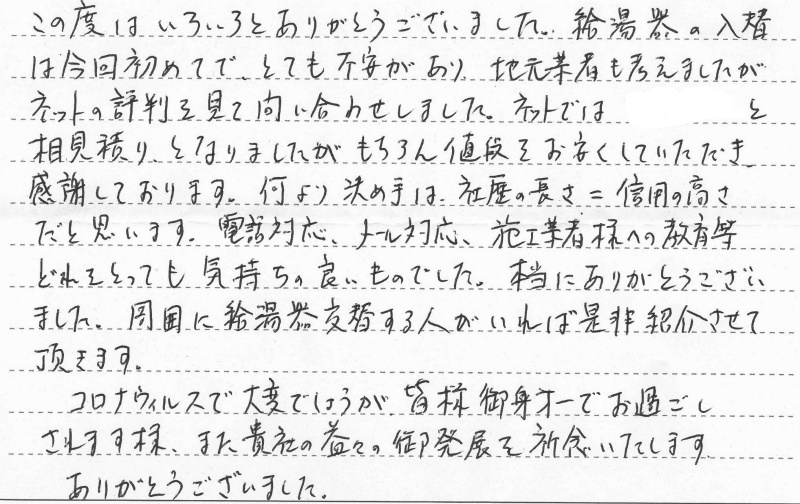 この度はいろいろとありがとうございました。給湯器の入替
は今回初めてで、とても不安があり、地元業者も考えましたが
ネットの評判を見て問い合わせしました。ネットでは と
相見積り、となりましたがもちろん値段もお安くしていただき
感謝しております。何より決め手は、社歴の長さ=信用の高さ
だと思います。電話対応、メール対応、施工業者様への教育等
どれをとっても気持ちの良いものでした。本当にありがとうござい
ました。周囲に給湯器交替する人がいれば是非紹介させて
頂きます。
コロナウィルスで大変でしょうが皆様御身オ一でお過ごし
されます様、また貴社の益々の御発展を祈念いたします
ありがとうございました。